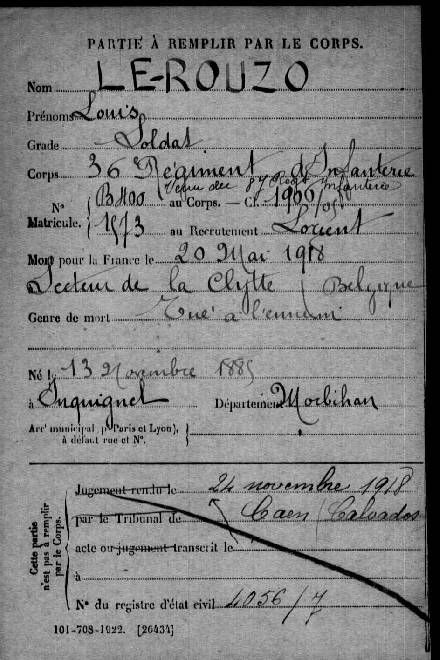 PARTIE À REMPLIR PAR LE CORPS.
Nom LE-ROUZO
Prénoms Louis
Grade Soldat
Corps 36 Régiment d'Infanterie
Venu du 87 Regt Infanterie
N° B1100 au Corps. — Cl. 1900/05
Matricule. 1573 au Recrutement Lorient
Mort pour la France le 20 Mai 1918
Secteur de la Clytte (Belgique
Genre de mort Tué à l'ennemi
Né le 13 Novembre 1885
à Inquignel Département Morbihan
Arr' municipal p' Paris et Lyon),
à défaut rue et N°.
Cette partie n'est pas à remplir par le Corps.
Jugement rendu le 24 novembre 1918
par le Tribunal de Caen (Calvados
acte ou jugement transcrit le
à
N° du registre d'état civil 4056/7
101-708-1922. [26434]